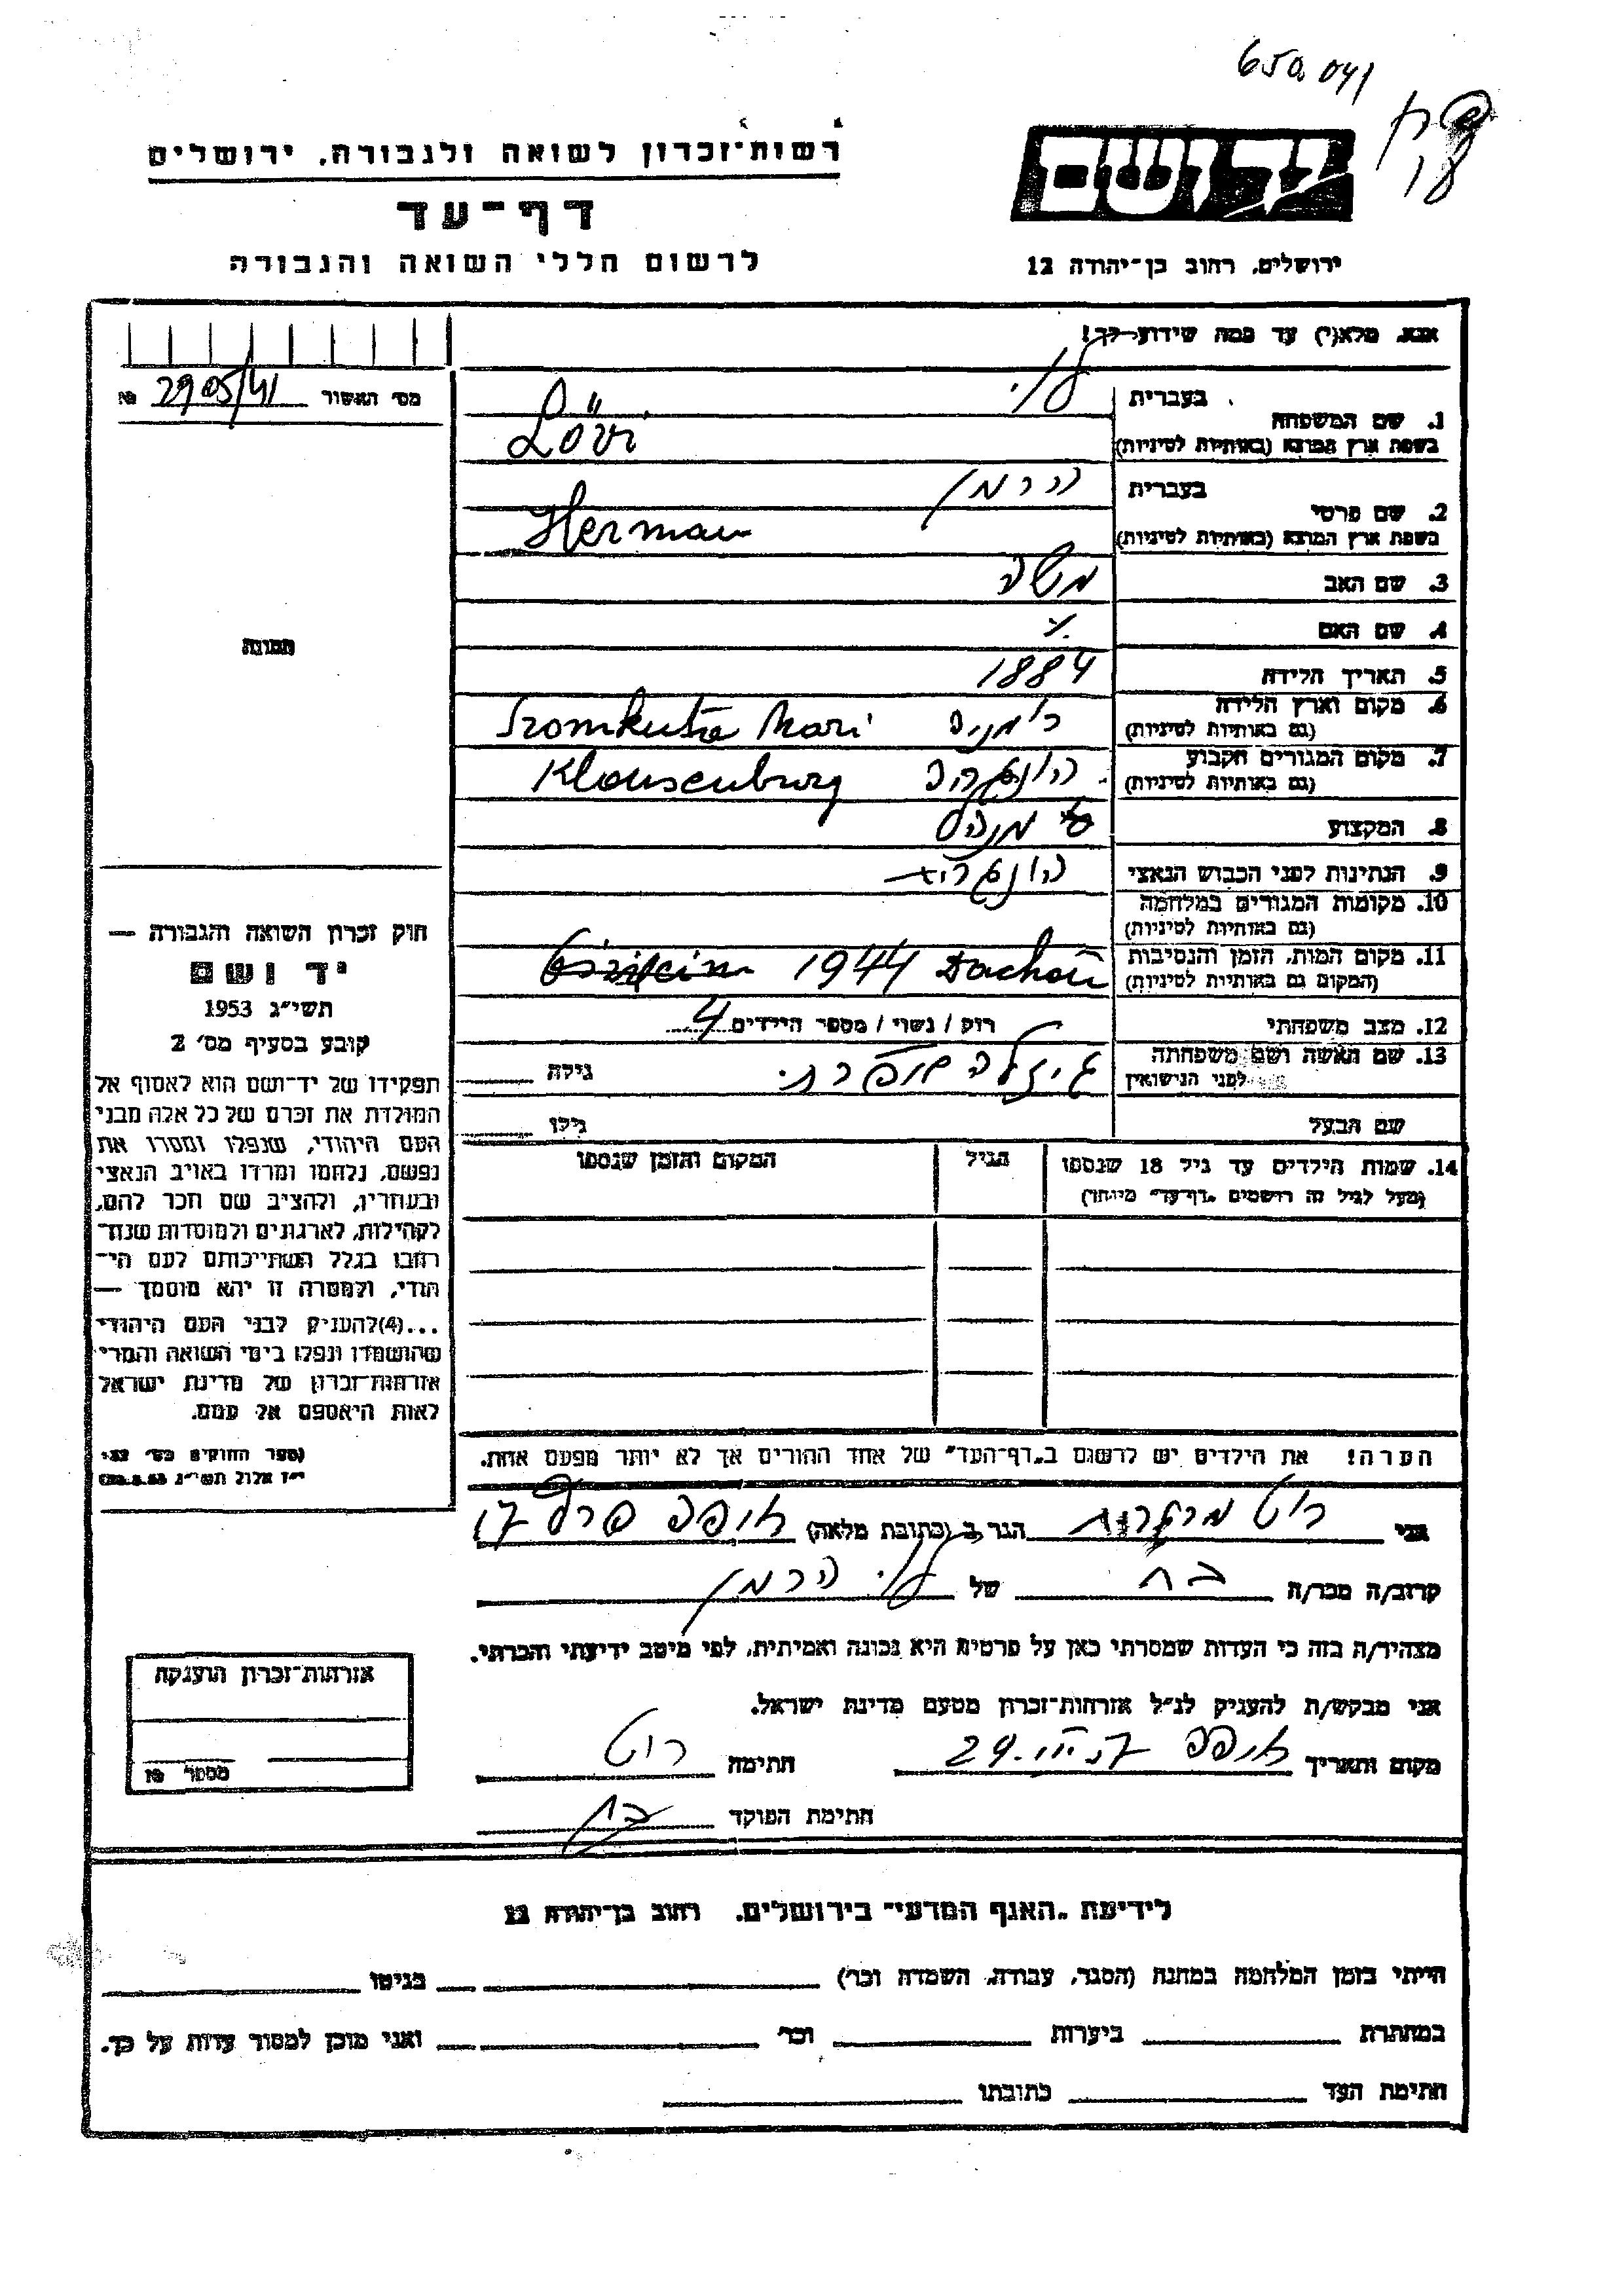 650.041
רשות־זכרון לשואה ולגבורה, ירושלים
דף־עד
לרשום חללי השואה והגבורה
ירושלים, רחוב בן־יהודה 12
אנא, מלא(י) עד כמה שידוע לך!
מס׳ האשור 2905/41 №
1. שם המשפחה
בעברית לוי
בשפת ארץ המוצא (באותיות לטיניות) Lövi
2. שם פרטי
בעברית הרמן
בשפת ארץ המוצא (באותיות לטיניות) Herman
3. שם האב משה
4. שם האם
5. תאריך הלידה 1884
6. מקום וארץ הלידה
(גם באותיות לטיניות) רומניה
7. מקום המגורים הקבוע
(גם באותיות לטיניות) הונגריה Klausenburg
8. המקצוע
9. הנתינות לפני הכבוש הנאצי הונגרית
10. מקומות המגורים במלחמה
(גם באותיות לטיניות)
11. מקום המות, הזמן והנסיבות
(המקום גם באותיות לטיניות) Dachau 1944
12. מצב משפחתי רוק / נשוי / מספר הילדים 4
13. שם האשה ושם משפחתה
לפני הנישואין גיזלה גילה
שם הבעל גילו
14. שמות הילדים עד גיל 18 שנספו
(מעל לגיל זה רושמים „דף־עד״ מיוחד)
הגיל
המקום והזמן שנספו
הערה! את הילדים יש לרשום ב„דף־העד״ של אחד ההורים אך לא יותר מפעם אחת.
תמונה
חוק זכרון השואה והגבורה —
יד ושם
תשי״ג 1953
קובע בסעיף מס׳ 2
תפקידו של יד־ושם הוא לאסוף אל
המולדת את זכרם של כל אלה מבני
העם היהודי, שנפלו ומסרו את
נפשם, נלחמו ומרדו באויב הנאצי
ובעוזריו, ולהציב שם וזכר להם,
לקהילות, לארגונים ולמוסדות שנח־
רבו בגלל השתייכותם לעם הי־
הודי, ולמטרה זו יהא מוסמך —
...(4)להעניק לבני העם היהודי
שהושמדו ונפלו בימי השואה והמרי
אזרחות־זכרון של מדינת ישראל
לאות היאספם אל עמם.
(ספר החוקים מס׳ 132
י״ז אלול תשי״ג 28.8.53)
אני רוט מרגרט הגר ב (כתובת מלאה)
קרוב/ה מכר/ה בת של לוי הרמן
מצהיר/ה בזה כי העדות שמסרתי כאן על פרטיה היא נכונה ואמיתית, לפי מיטב ידיעתי והכרתי.
אני מבקש/ת להעניק לנ״ל אזרחות־זכרון מטעם מדינת ישראל.
מקום ותאריך חתימה רוט
חתימת הפוקד
אזרחות־זכרון הוענקה
מספר №
לידיעת „האגף המדעי״ בירושלים, רחוב בן־יהודה 12
הייתי בזמן המלחמה במחנה (הסגר, עבודה, השמדה וכו׳) בגיטו
במחתרת ביערות וכו׳ ואני מוכן למסור עדות על כך.
חתימת העד כתובתו